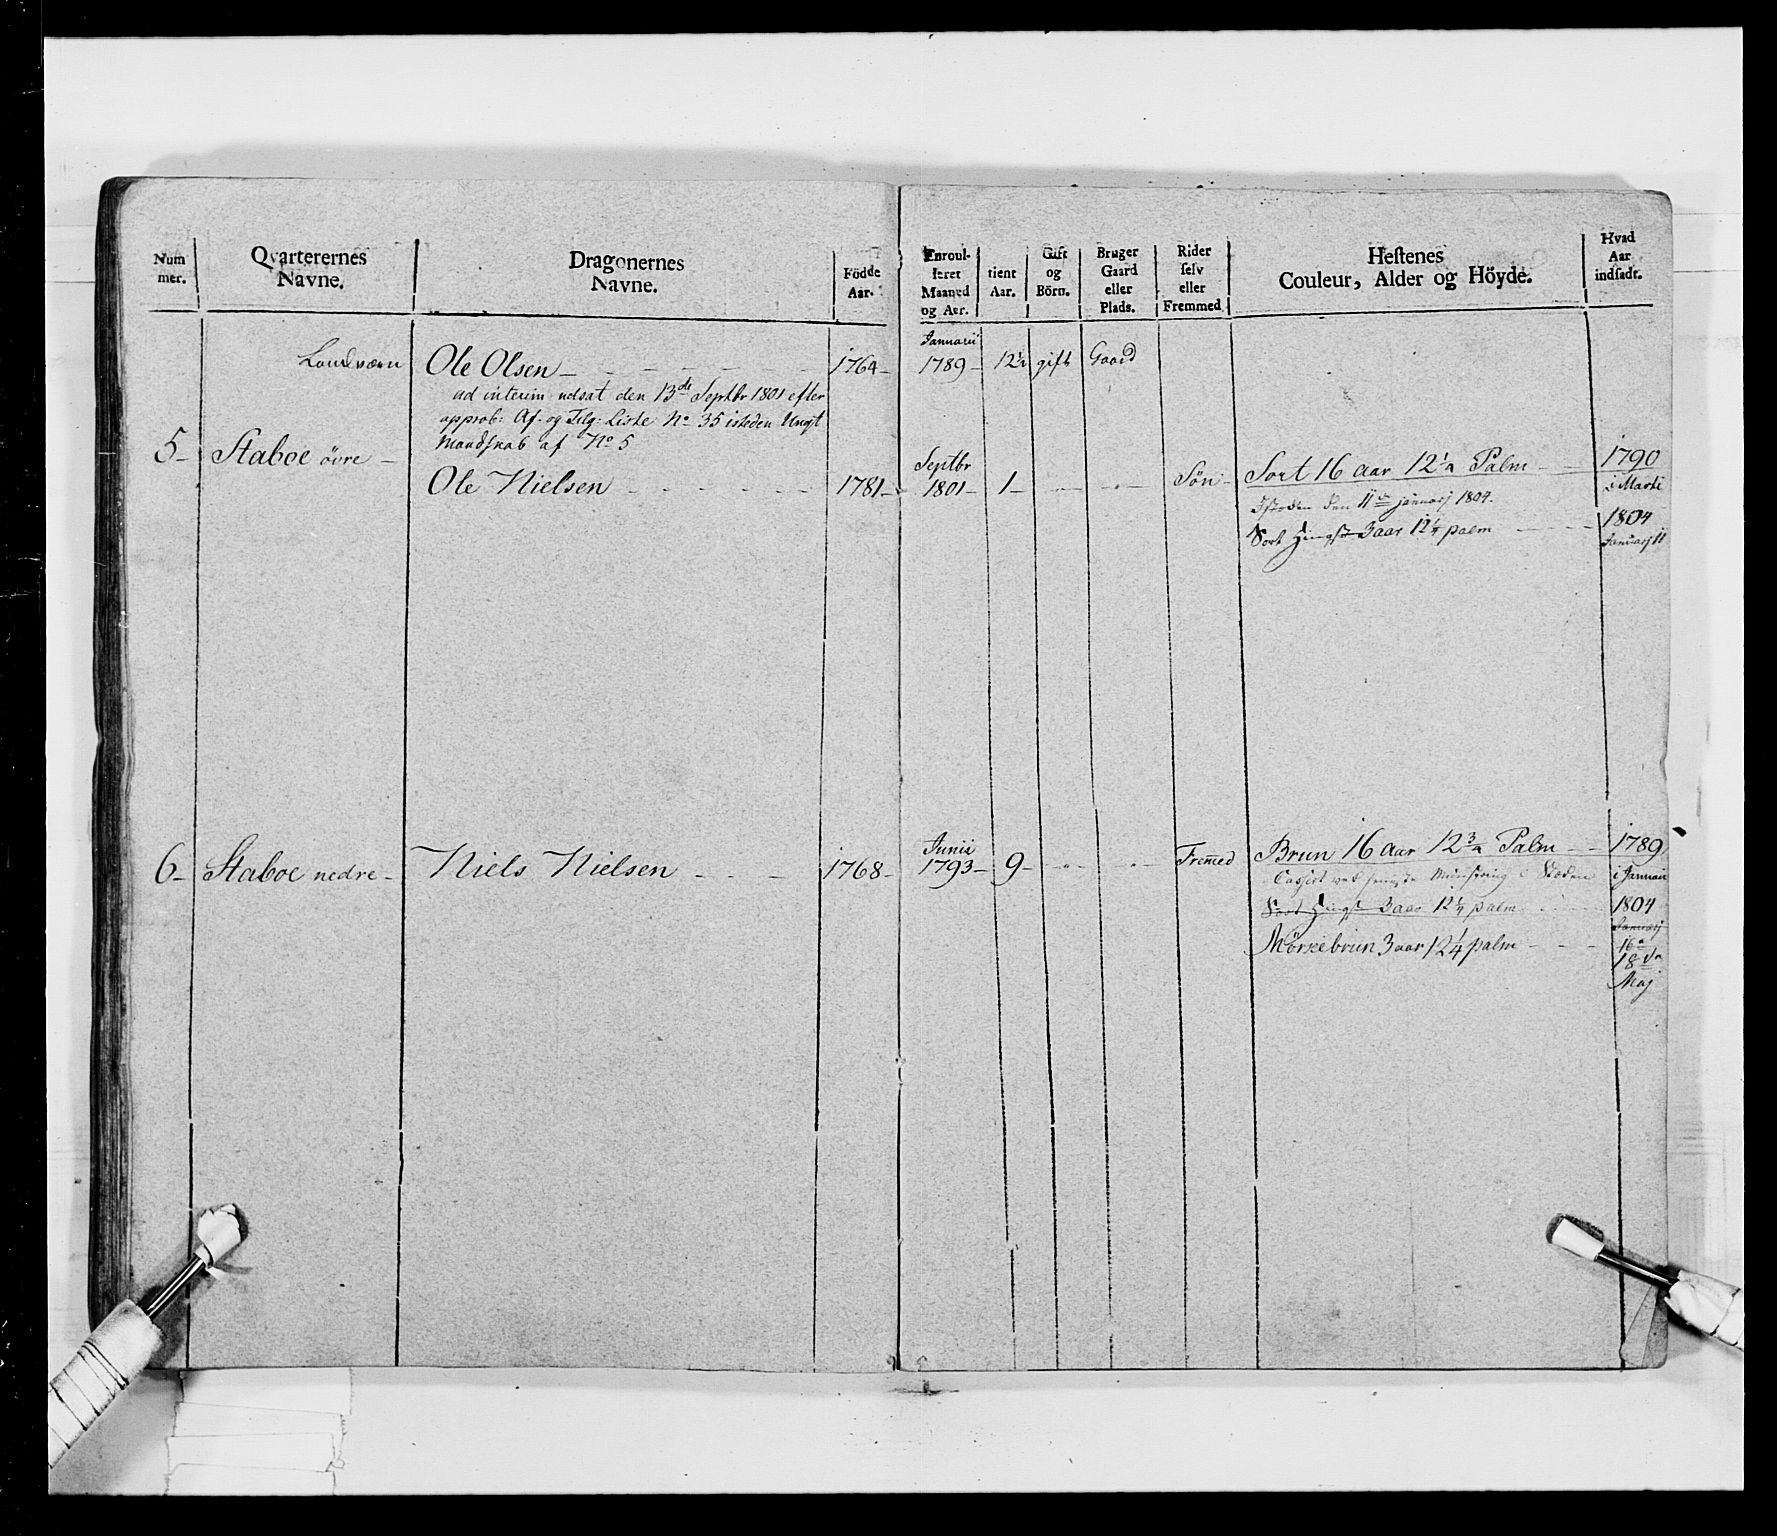 Num
mer.
Qvarterernes
Navne.
Dragonernes
Navne.
Födde
Aar.
Enroul-
leret
Maaned
og Aar.
tient
Aar.
Gift
og
Börn.
Bruger
Gaard
eller
Plads.
Rider
selv
eller
Fremmed
Hestenes
Couleur, Alder og Höyde.
Hvad
Aar
indsadt.
Landværn Ole Olsen 1764 Januarii 1789 12½ gift Gaard
ad interim udsat den 13de Septbr 1801 efter
approb: Af- og Tilg: Liste No 35 isteden Ungt
Mandskab af No 5
5 Staboe övre
Ole Nielsen 1781 Septbr 1801 1 Søn Sort 16 aar 12½ Palm 1790
i Marti
Isteden den 11te januarj 1804.
Sort Hingst 3 aar 12¼ palm 1804
Januarj 11
6 Staboe nedre Niels Nielsen 1768 Junii 1793 9 Fremed Brun 16 aar 12¾ Palm 1789
i Januari
Cassert ved seneste Mönstring i Stæden
Sort Hingst 3 aar 12¼ palm 1804
Januarj
16
Mörkebrun 3 aar 12¼ palm 18de
Maj